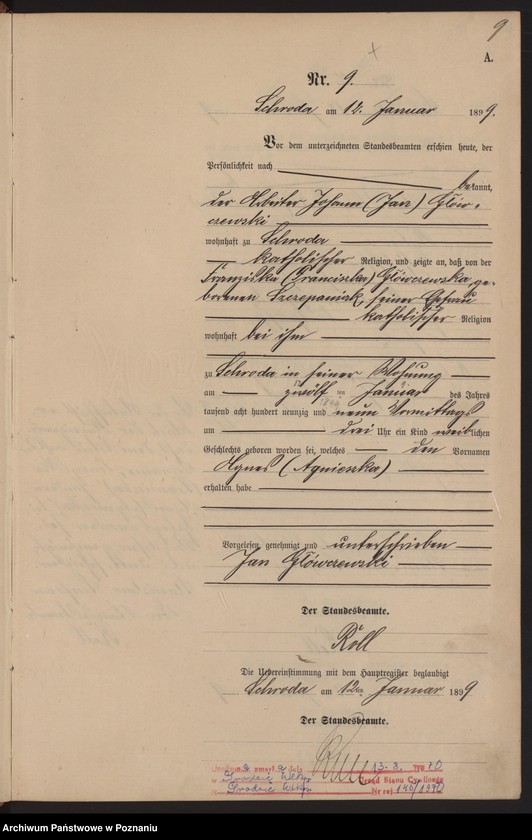 9
A.
Nr. 9.
Schroda am 12. Januar 1899.
Vor dem unterzeichneten Standesbeamten erschien heute, der
Persönlichkeit nach
bekannt,
der Arbeiter Johann (Jan) Głów-
czewski
wohnhaft zu Schroda
katholischer Religion, und zeigte an, daß von der
Franziska (Franciszka) Głowczewska, ge-
borenen Szczepaniak, seiner Ehefrau
katholischer Religion
wohnhaft bei ihm
zu Schroda in seiner Wohnung
am zwölften Januar des Jahres
tausend acht hundert neunzig und neun Vormittags
um drei Uhr ein Kind weiblichen
Geschlechts geboren worden sei, welches den Vornamen
Agnes (Agnieszka)
erhalten habe
Vorgelesen, genehmigt und unterschrieben
Jan Głowczewski
Der Standesbeamte.
Röll
Die Uebereinstimmung mit dem Hauptregister beglaubigt
Schroda am 12ten Januar 1899
Der Standesbeamte.
13. 3. 1990
Grodzisk Wlkp.
Urząd Stanu Cywilnego
Grodzisk Wlkp.
Nr rej 140/1990
Archiwum Państwowe w Poznaniu